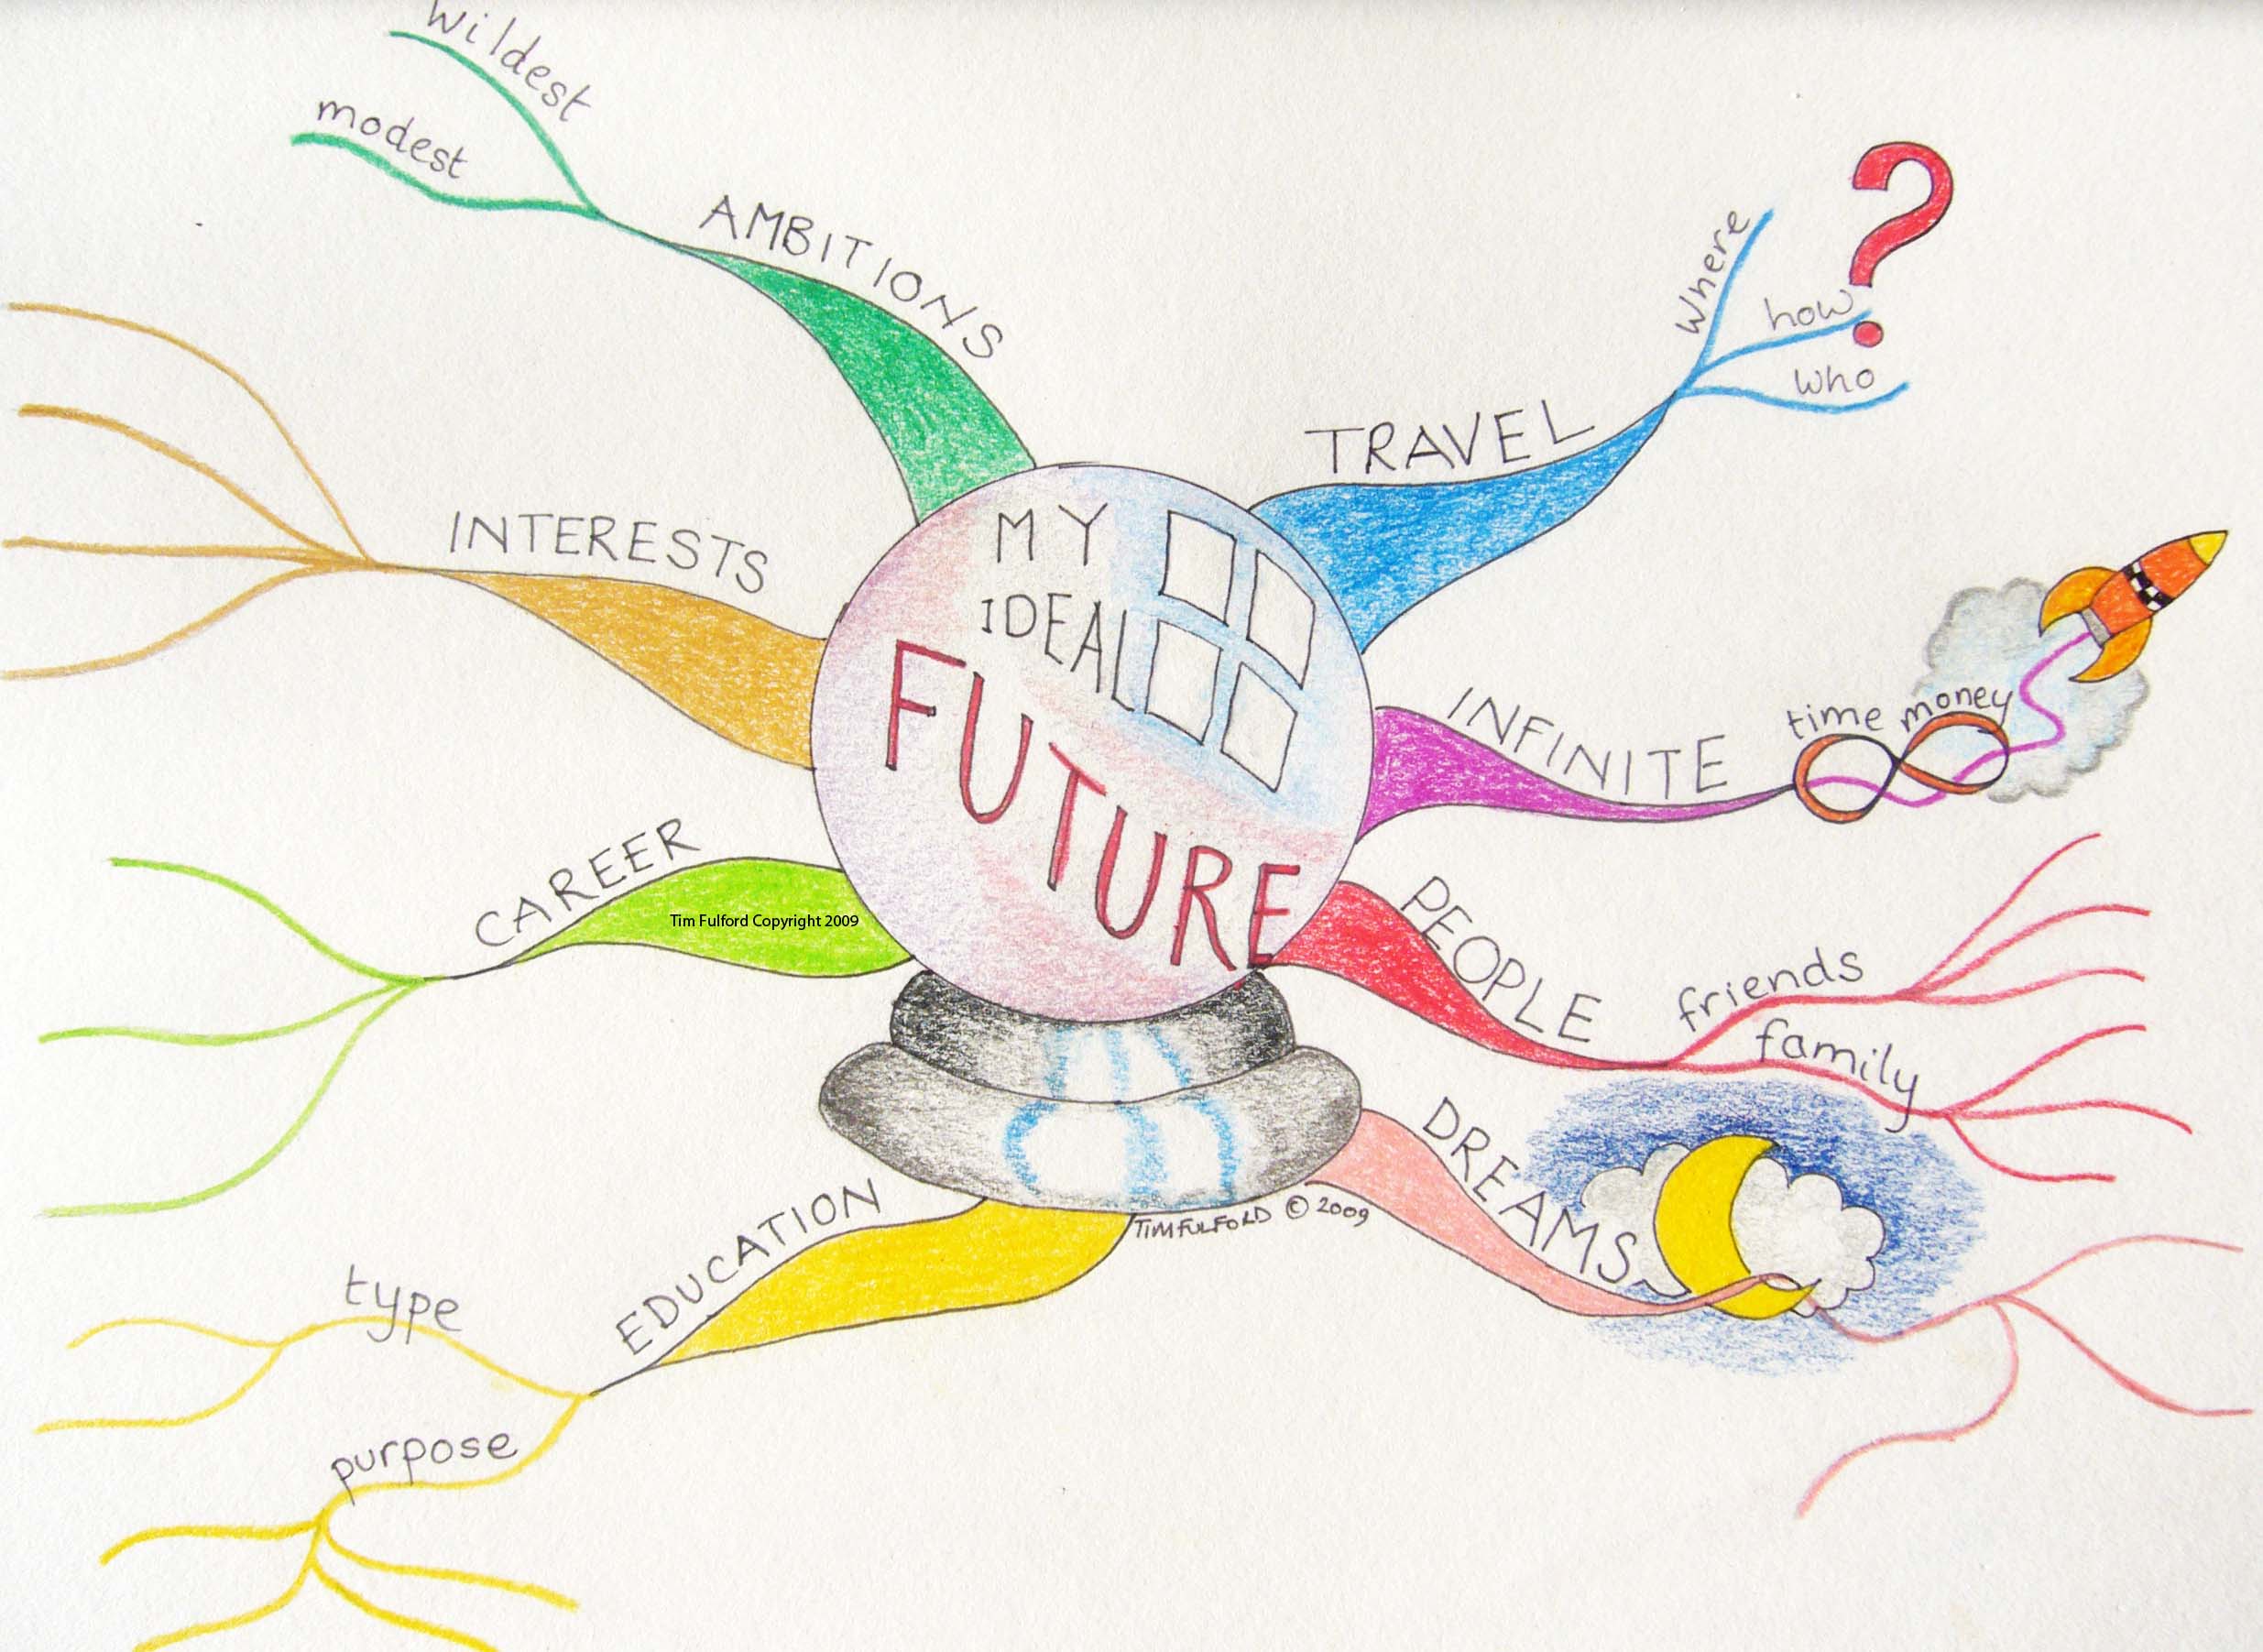 wildest
modest
AMBITIONS
TRAVEL
where
how
?
who
INTERESTS
MY
IDEAL
FUTURE
INFINITE
time money
CAREER
Tim Fulford Copyright 2009
PEOPLE
friends
family
DREAMS
TIM FULFORD © 2009
EDUCATION
type
purpose